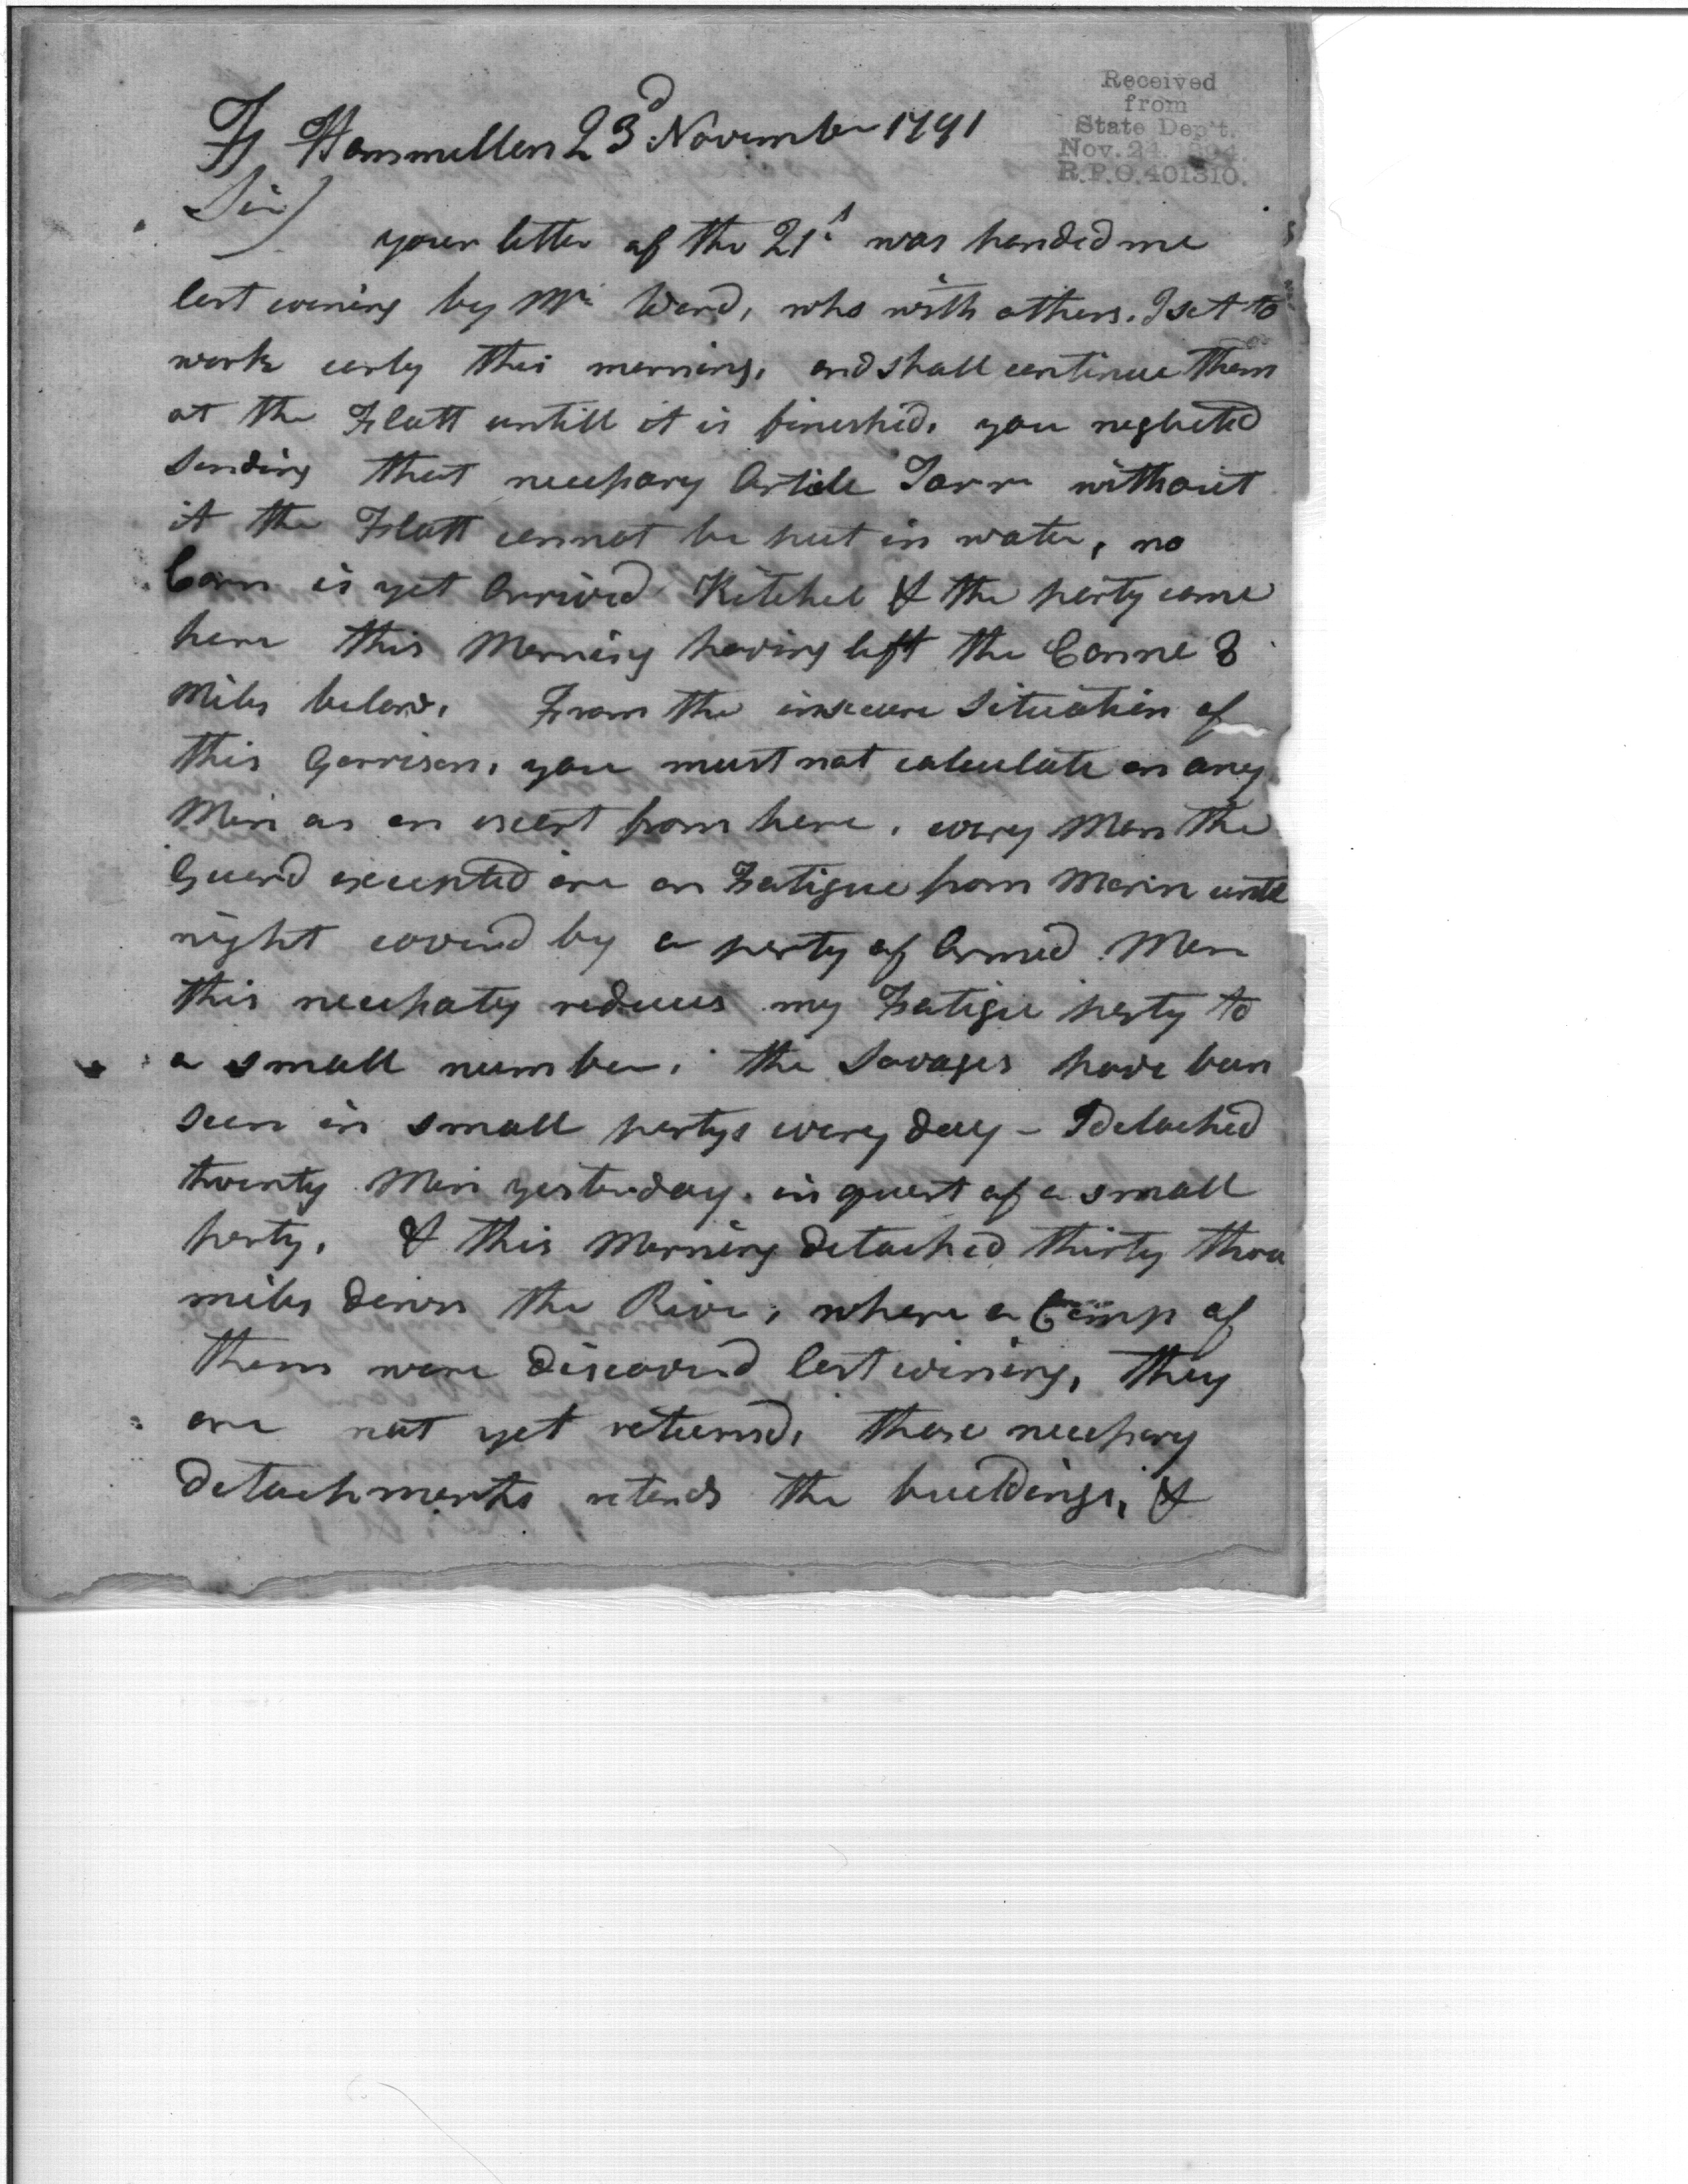 Received
from
State Dep't.
Nov. 24. 1894.
R.P.O. 401310.
Ft Hammelton 23d November 1791
Sir)
your letter of the 21st was handed me
last evening by Mr Ward, who with others. I set to
work early this morning, and shall continue them
at the Flatt untill it is finished. you neglected
sending that necessary Article Tarr without
it the Flatt cannot be put in water, no
Corn is yet Arrived Kitchel & the party came
here this Morning having left the Conne 8
Miles below. From the insecure situation of
this Garrison, you must not calculate on any
Men as an escort from here, every Man the
Guard excepted are on Fatigue from Morn until
night covered by a party of Armed Men
this necessaty reduces my Fatigue party to
a small number. the Savages have been
seen in small partys every day - I detached
twenty Men yesterday. in quest of a small
party. & this Morning detached thirty three
miles down the River, where a Camp of
them were discovered last evining, they
are not yet returned, these necessary
detachments retards the buildings, &